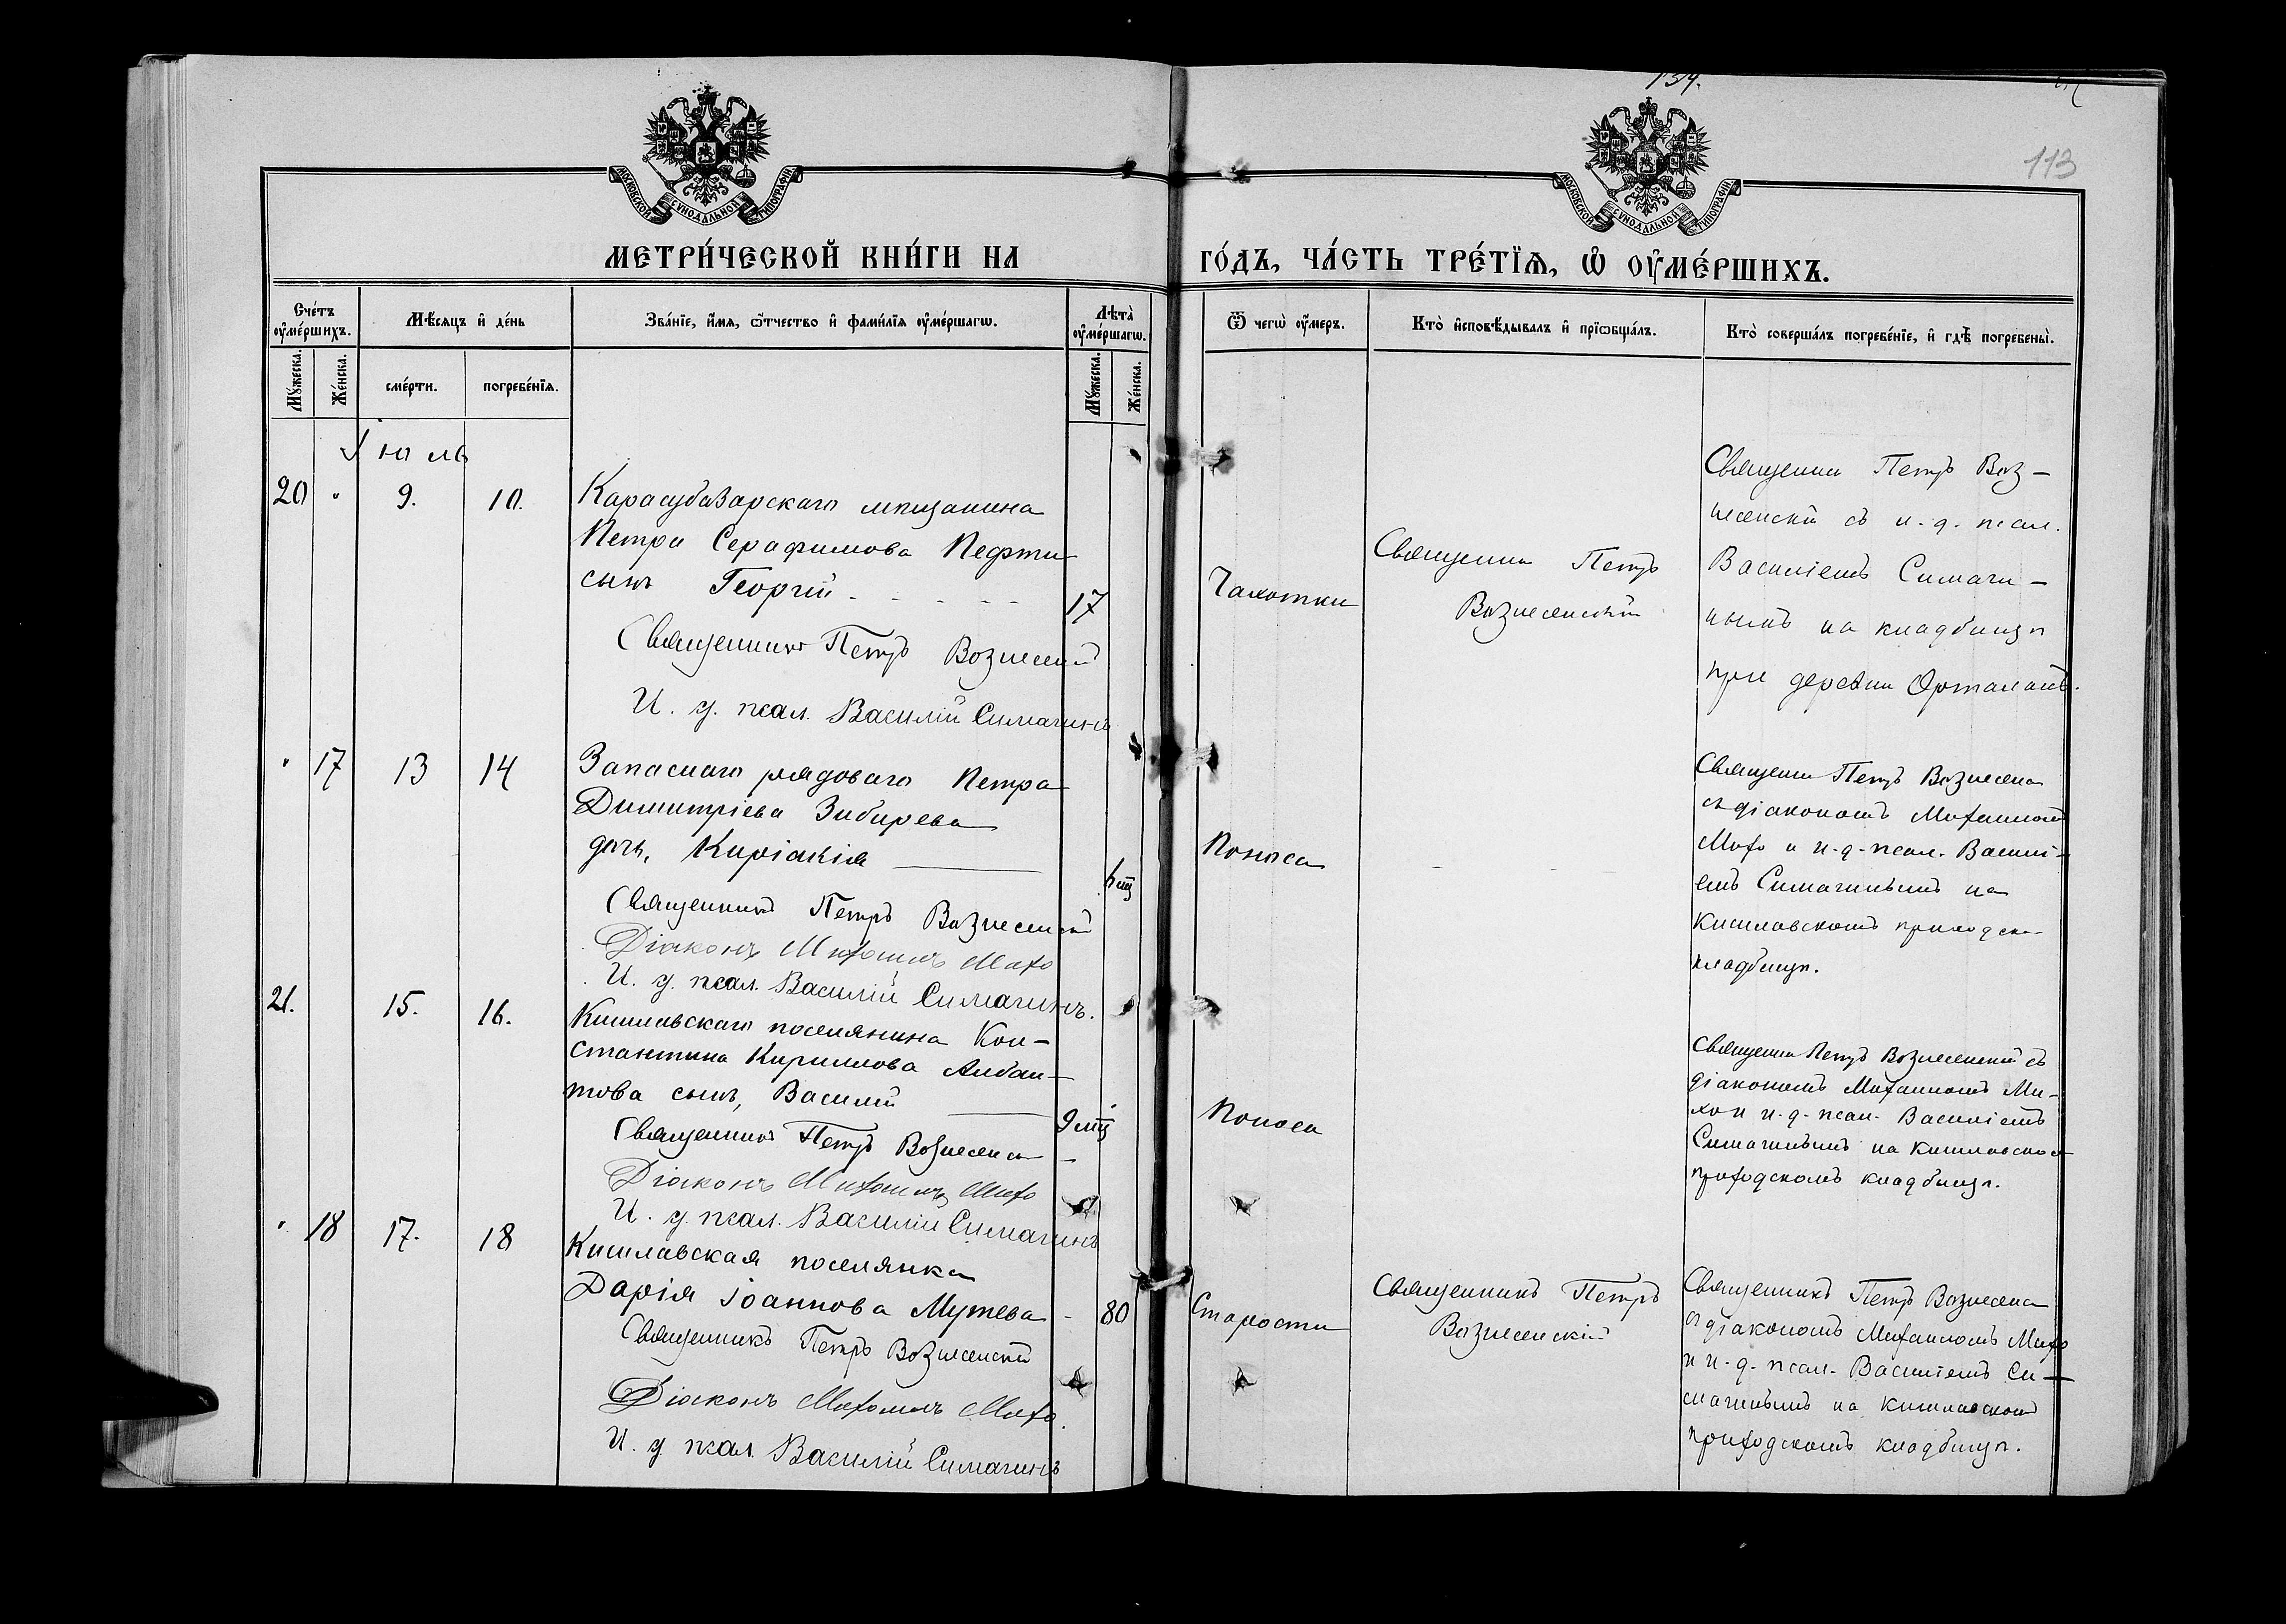 139.
113
МОСКОВСКОЙ СѴНОДАЛЬНОЙ ТИПОГРАФІИ.
МОСКОВСКОЙ СѴНОДАЛЬНОЙ ТИПОГРАФІИ.
МЕТРИ́ЧЕСКОЙ КНИ́ГИ НА
ГО́ДЪ, ЧА́СТЬ ТРЕ́ТЇѦ, Ѡ҆ ОУ҆МЕ́РШИХЪ.
Сче́тъ оу҆ме́ршихъ.
Мѣ́сяцъ и҆ де́нь
Зва́нїе, и҆́мѧ, ѻ҆́тчество и҆ фами́лїѧ оу҆ме́ршагѡ.
Лѣта̀ оу҆ме́ршагѡ.
Ѿ чегѡ̀ оу҆́меръ.
Кто̀ и҆сповѣ́дывалъ и҆ прїѡбща́лъ.
Кто̀ соверша́лъ погребе́нїе, и҆ гдѣ̀ погребены̀.
Мꙋ́жеска.
Же́нска.
сме́рти.
погребе́нїѧ.
Мꙋ́жеска.
Же́нска.
Іюль
20 " 9. 10.
Карасубазарскаго мѣщанина
Петра Серафимова Пефти
сынъ Георгій
17
Священникъ Петръ Вознесенскій
И. д. псал. Василій Симагинъ
Чахотки
Священни Петръ
Вознесенскій
Священни Петръ Воз-
несенскій съ и. д. псал.
Василіемъ Симаги-
нымъ на кладбищѣ
при деревни Орталанъ.
" 17 13 14
Запаснаго рядоваго Петра
Димитріева Зибирева
дочь, Киріакія
6 мц
Священникъ Петръ Вознесенскій
Діаконъ Михаилъ Михо
И. д. псал. Василій Симагинъ.
Поноса
Священни Петръ Вознесенс
съ діакономъ Михаиломъ
Михо и и. д. псал. Василі-
емъ Симагинымъ на
Кишлавскомъ приходск.
кладбищѣ.
21. 15. 16.
Кишлавскаго поселянина Кон-
стантина Кириллова Анбан-
това сынъ, Василій
9 мц
Священникъ Петръ Вознесенск
Діаконъ Михаилъ Михо
И. д. псал. Василій Симагинъ
Поноса
Священни Петръ Вознесенскій съ
діакономъ Михаиломъ Ми-
хо и и. д. псал. Василіемъ
Симагинымъ на Кишлавском
приходскомъ кладбищѣ.
" 18 17. 18
Кишлавская поселянка
Дарія Іоаннова Мутева
80
Священникъ Петръ Вознесенскій
Діаконъ Михаилъ Михо.
И. д. псал. Василій Симагинъ
Старости
Священникъ Петръ
Вознесенскій
Священникъ Петръ Вознесенс
съ діакономъ Михаиломъ Михо
и и. д. псал. Василіемъ Си-
магинымъ на Кишлавском
приходскомъ кладбищѣ.